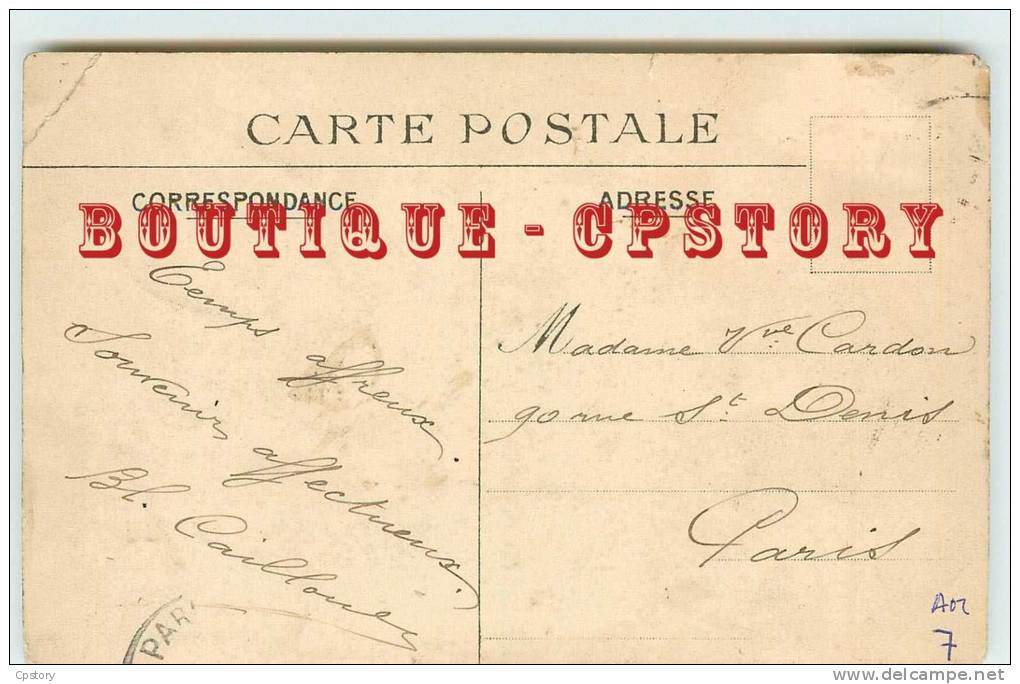 CARTE POSTALE
CORRESPONDANCE
ADRESSE
BOUTIQUE - CPSTORY
Temps affreux.
Souvenirs affectueux.
Bl.
Madame Vve Cardon
90 rue St. Denis
Paris
PARI
7
Cpstory
www.delcampe.net